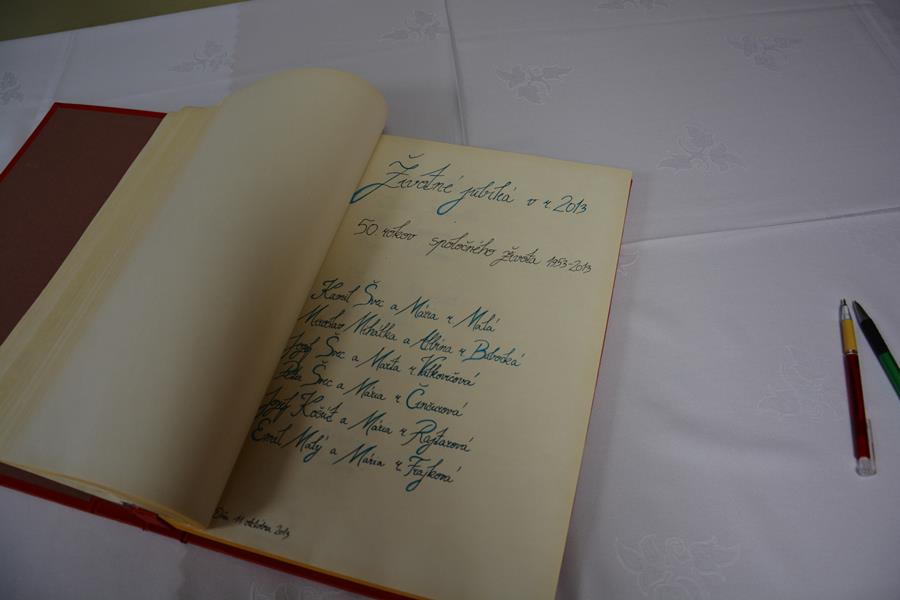 Životné jubileá v r. 2013
50. rokov spoločného života 1953-2013
Kamil Švec a Mária r. Malá
Miroslav Mihálka a Albína r. Babocká
Jozef Švec a Marta r. Vaškovičová
Švec a Mária r. Činčurová
Jozef Košút a Mária r. Rajtarová
Emil Malý a Mária r. Frajková
Dňa 11 októbra 2013